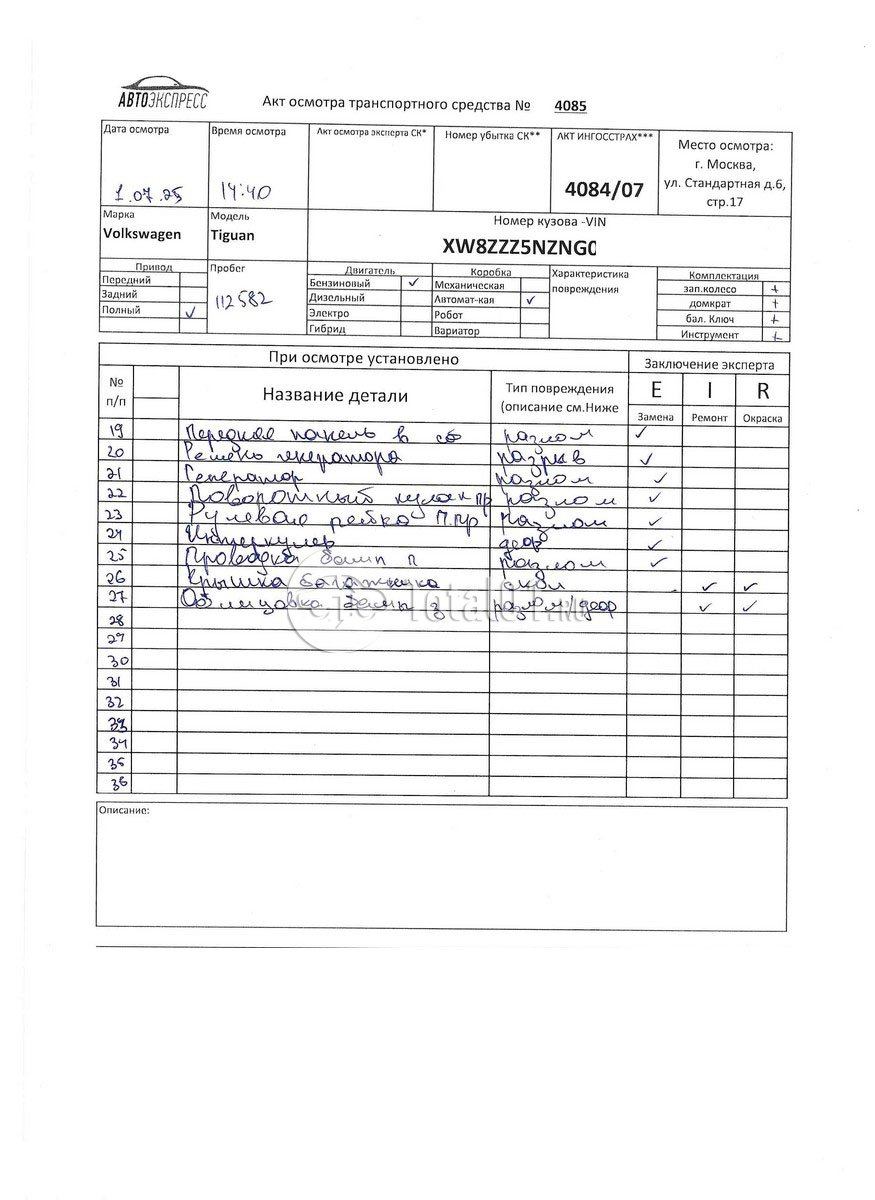 АВТОЭКСПРЕСС
Акт осмотра транспортного средства № 4085
Дата осмотра
1.07.25
Время осмотра
14:40
Акт осмотра эксперта СК*
Номер убытка СК**
АКТ ИНГОССТРАХ***
4084/07
Место осмотра:
г. Москва,
ул. Стандартная д.6,
стр.17
Марка
Volkswagen
Модель
Tiguan
Номер кузова -VIN
XW8ZZZ5NZNG0
Привод
Передний
Задний
Полный ✓
Пробег
112582
Двигатель
Бензиновый ✓
Дизельный
Электро
Гибрид
Коробка
Механическая
Автомат-кая ✓
Робот
Вариатор
Характеристика
повреждения
Комплектация
зап.колесо +
домкрат +
бал. Ключ +
Инструмент +
При осмотре установлено
Заключение эксперта
№
п/п
Название детали
Тип повреждения
(описание см.Ниже
E I R
Замена Ремонт Окраска
19 Передняя панель в сб разлом ✓
20 Ремень генератора разрыв ✓
21 Генератор разлом ✓
22 Поворотный кулак пр разлом ✓
23 Рулевая рейка п.пр разлом ✓
24 Интеркулер деф ✓
25 Проводка бамп п разлом ✓
26 Крышка багажника скол ✓ ✓
27 Облицовка бамп з разлом/деф ✓ ✓
28
29
30
31
32
33
34
35
36
Total01.ru
Описание: